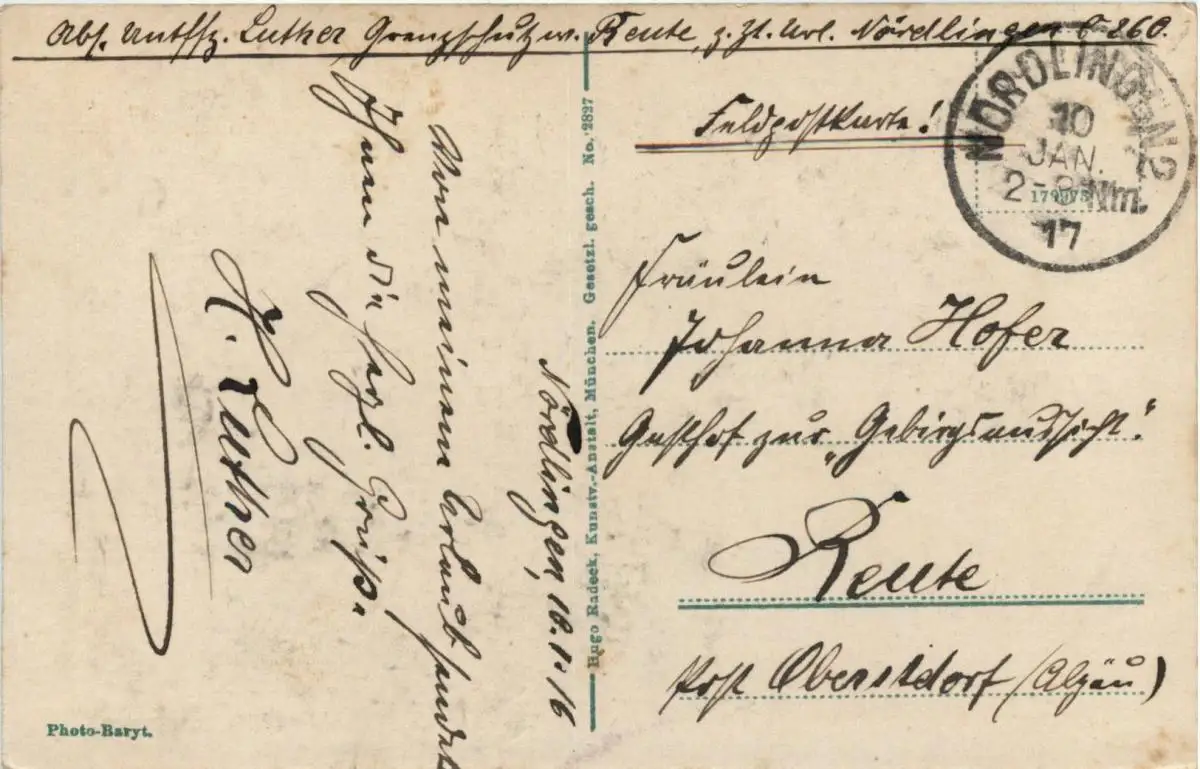 Abs. Untffz. Luther, Grenzschutzw. Reute, z. Zt. Url. Nördlingen C 260.
Feldpostkarte!
NÖRDLINGEN 2
10
JAN.
2-8 Nm.
17
179975
Fräulein
Johanna Hofer
Gasthof zur „Gebirgsaussicht".
Reute
Post Oberstdorf (Algäu)
Hugo Radeck, Kunstv.-Anstalt, München. Gesetzl. gesch. No. 2827
Nördlingen, 10.1.16
Von meinem Urlaub sendet
Ihnen die herzl. Grüße
H. Luther
Photo-Baryt.